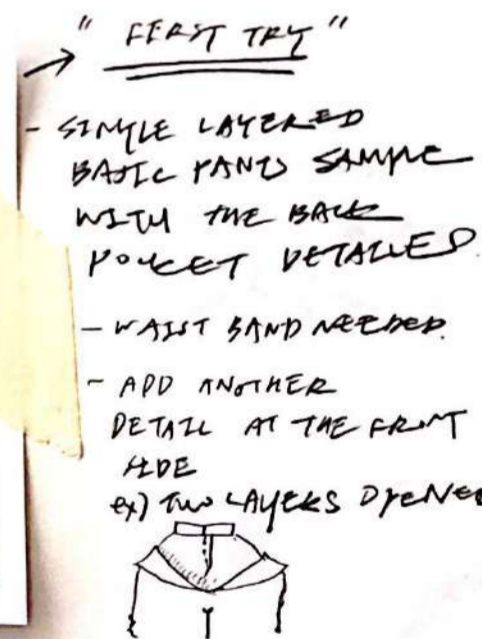 "FIRST TRY"
- SINGLE LAYERED
BASIC PANTS SAMPLE
WITH THE BACK
POCKET DETAILED
- WAIST BAND NEEDED.
- ADD ANOTHER
DETAIL AT THE FRONT
SIDE
ex) TWO LAYERS OPENED